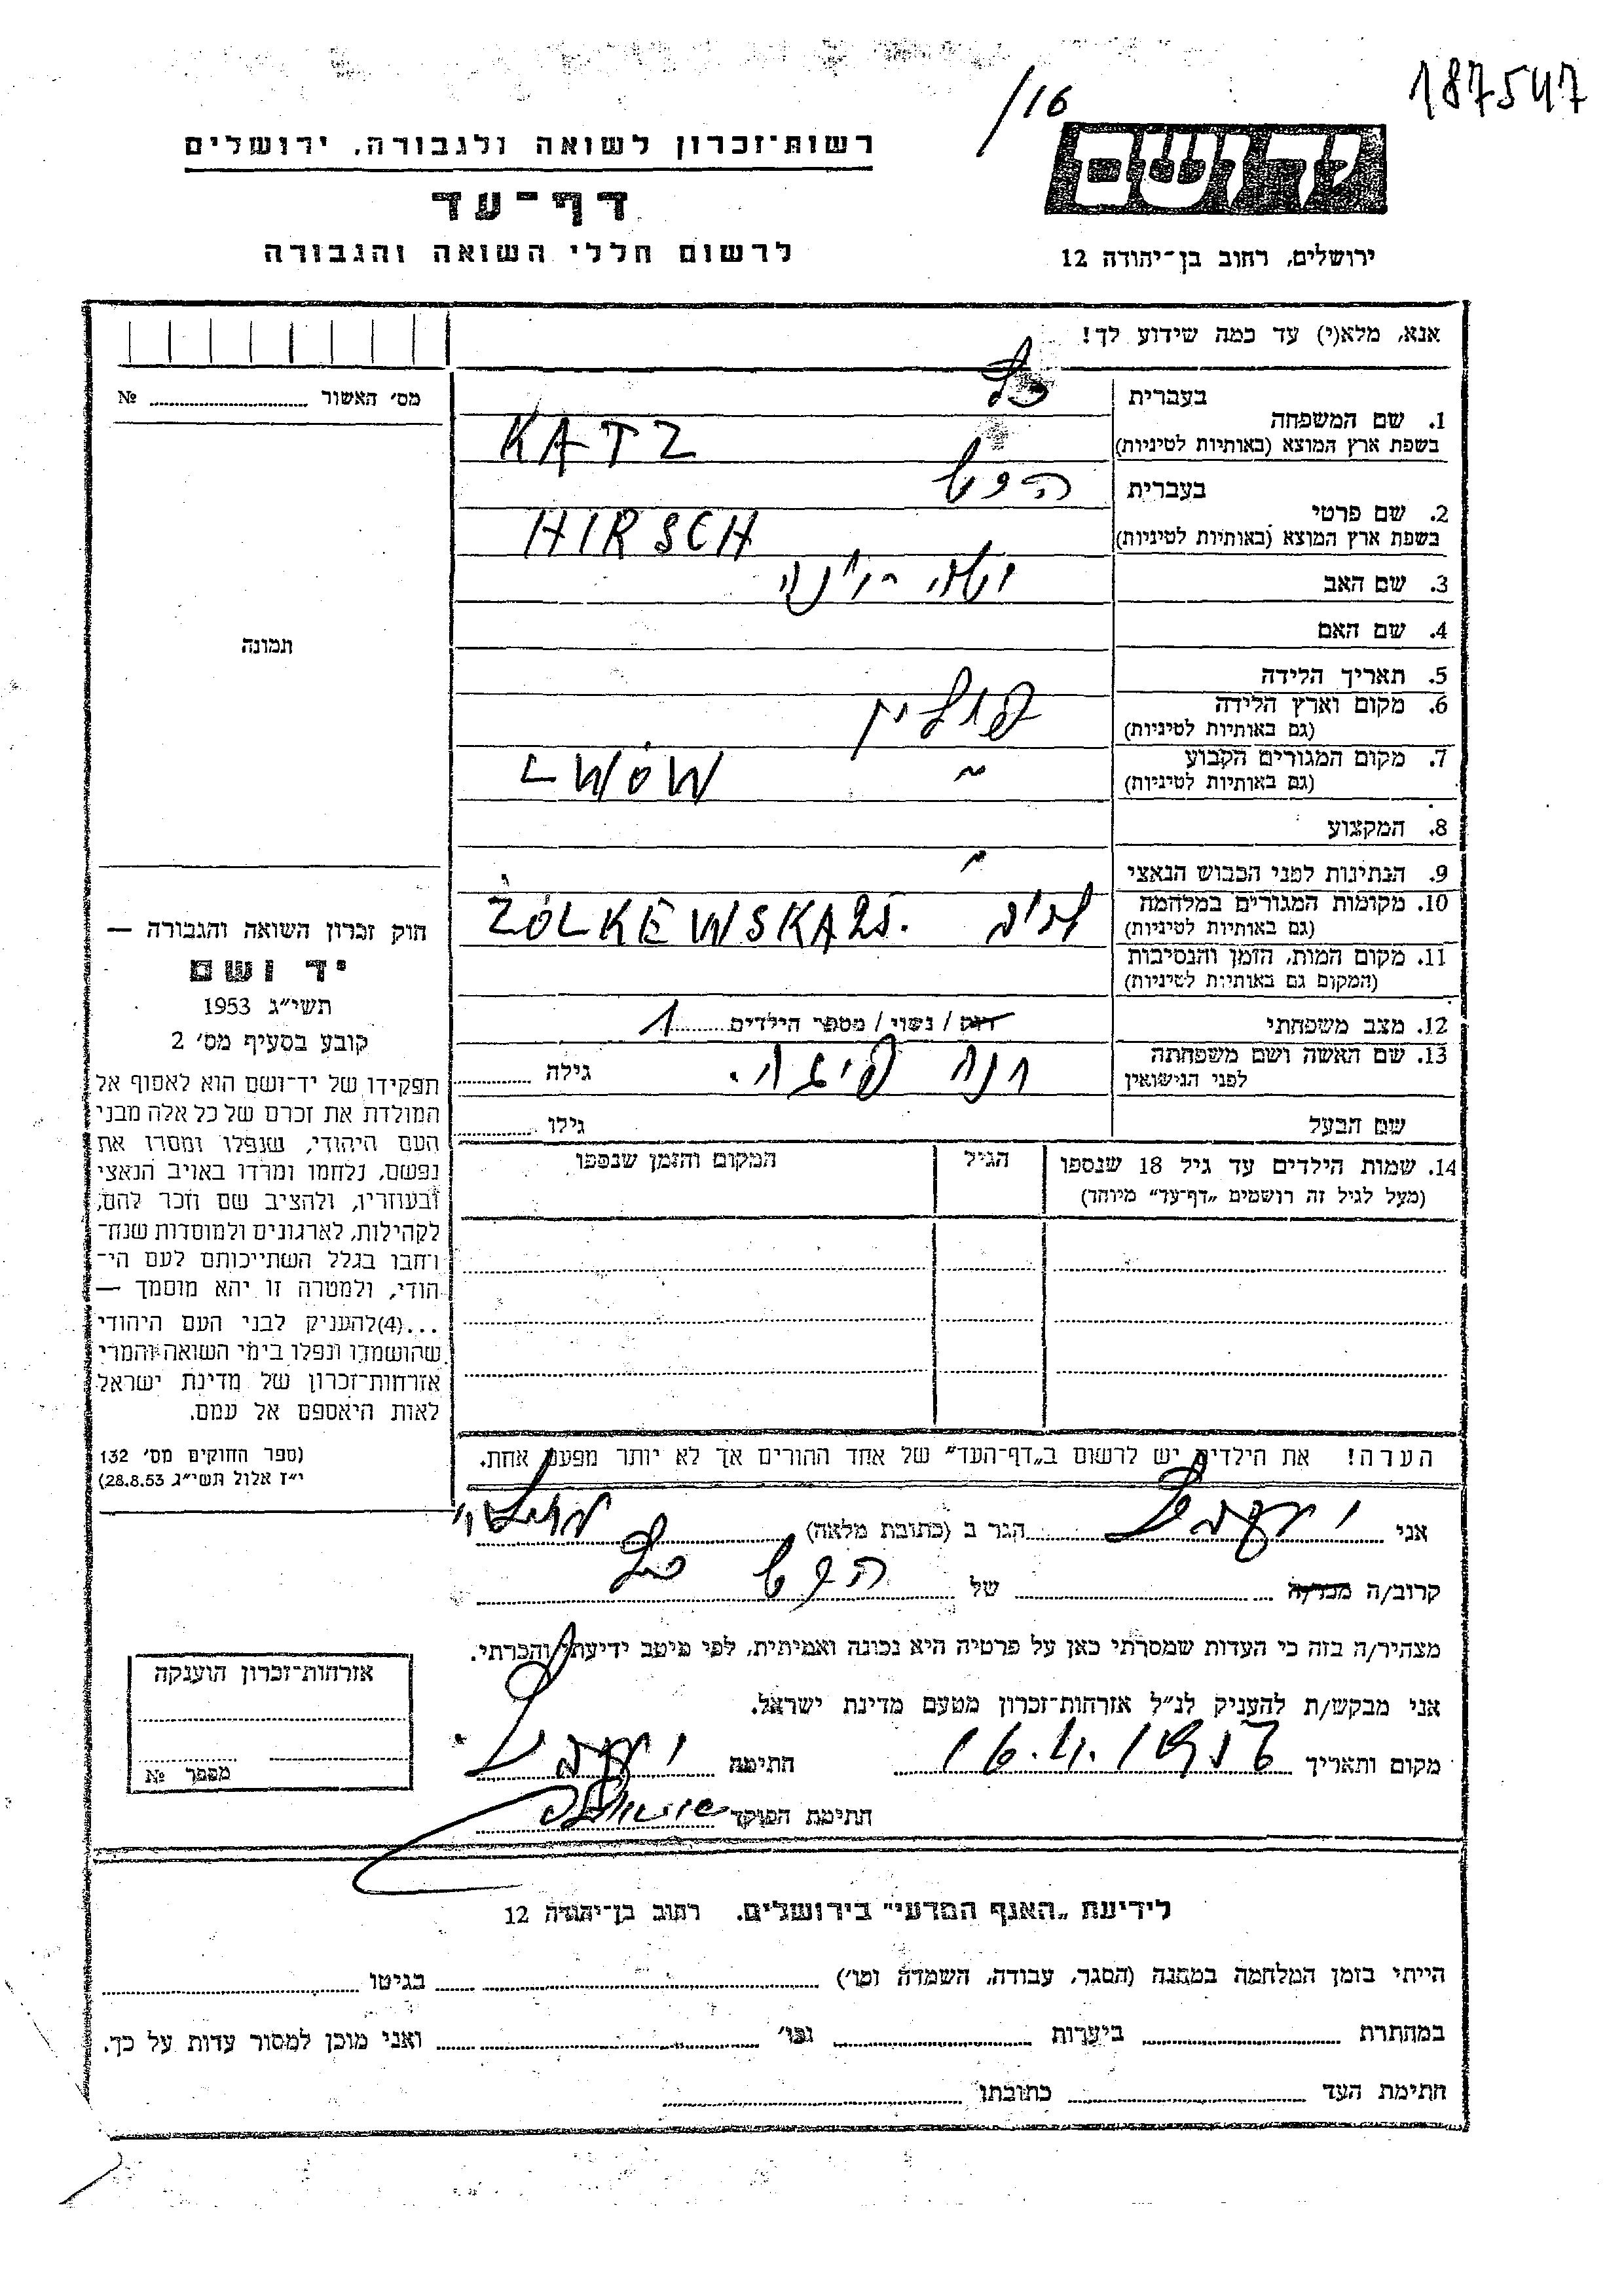 187547
/16
יד ושם
רשות־זכרון לשואה ולגבורה, ירושלים
דף־עד
לרשום חללי השואה והגבורה
ירושלים, רחוב בן־יהודה 12
אנא, מלא(י) עד כמה שידוע לך!
מס׳ האשור № 
בעברית כץ
1. שם המשפחה
בשפת ארץ המוצא (באותיות לטיניות) KATZ
בעברית הירש
2. שם פרטי
בשפת ארץ המוצא (באותיות לטיניות) HIRSCH
3. שם האב
4. שם האם
5. תאריך הלידה
6. מקום וארץ הלידה פולין
(גם באותיות לטיניות)
7. מקום המגורים הקבוע LWÓW
(גם באותיות לטיניות)
8. המקצוע
9. הנתינות לפני הכבוש הנאצי "
10. מקומות המגורים במלחמה ŻOLKEWSKA 25.
(גם באותיות לטיניות)
11. מקום המות, הזמן והנסיבות
(המקום גם באותיות לטיניות)
12. מצב משפחתי רווק / נשוי / מספר הילדים 1
13. שם האשה ושם משפחתה חנה גילה
לפני הנישואין
שם הבעל גילו
14. שמות הילדים עד גיל 18 שנספו הגיל המקום והזמן שנספו
(מעל לגיל זה רושמים „דף־עד” מיוחד)
הערה! את הילדים יש לרשום ב„דף־העד” של אחד ההורים אך לא יותר מפעם אחת.
תמונה
חוק זכרון השואה והגבורה —
יד ושם
תשי״ג 1953
קובע בסעיף מס׳ 2
תפקידו של יד־ושם הוא לאסוף אל
המולדת את זכרם של כל אלה מבני
העם היהודי, שנפלו ומסרו את
נפשם, נלחמו ומרדו באויב הנאצי
ובעוזריו, ולהציב שם וזכר להם,
לקהילות, לארגונים ולמוסדות שנח־
רבו בגלל השתייכותם לעם הי־
הודי, ולמטרה זו יהא מוסמך —
...(4)להעניק לבני העם היהודי
שהושמדו ונפלו בימי השואה והמרי
אזרחות־זכרון של מדינת ישראל
לאות היאספם אל עמם.
(ספר החוקים מס׳ 132
י״ז אלול תשי״ג 28.8.53)
אני הגר ב (כתובת מלאה)
קרוב/ה מכר/ה של הירש כץ
מצהיר/ה בזה כי העדות שמסרתי כאן על פרטיה היא נכונה ואמיתית, לפי מיטב ידיעתי והכרתי.
אני מבקש/ת להעניק לנ״ל אזרחות־זכרון מטעם מדינת ישראל.
מקום ותאריך 16.4.1956 חתימה
חתימת הפוקד
אזרחות־זכרון הוענקה
מספר №
לידיעת „האגף המדעי” בירושלים. רחוב בן־יהודה 12
הייתי בזמן המלחמה במחנה (הסגר, עבודה, השמדה וכו׳) בגיטו
במחתרת ביערות וכו׳ ואני מוכן למסור עדות על כך.
חתימת העד כתובתו